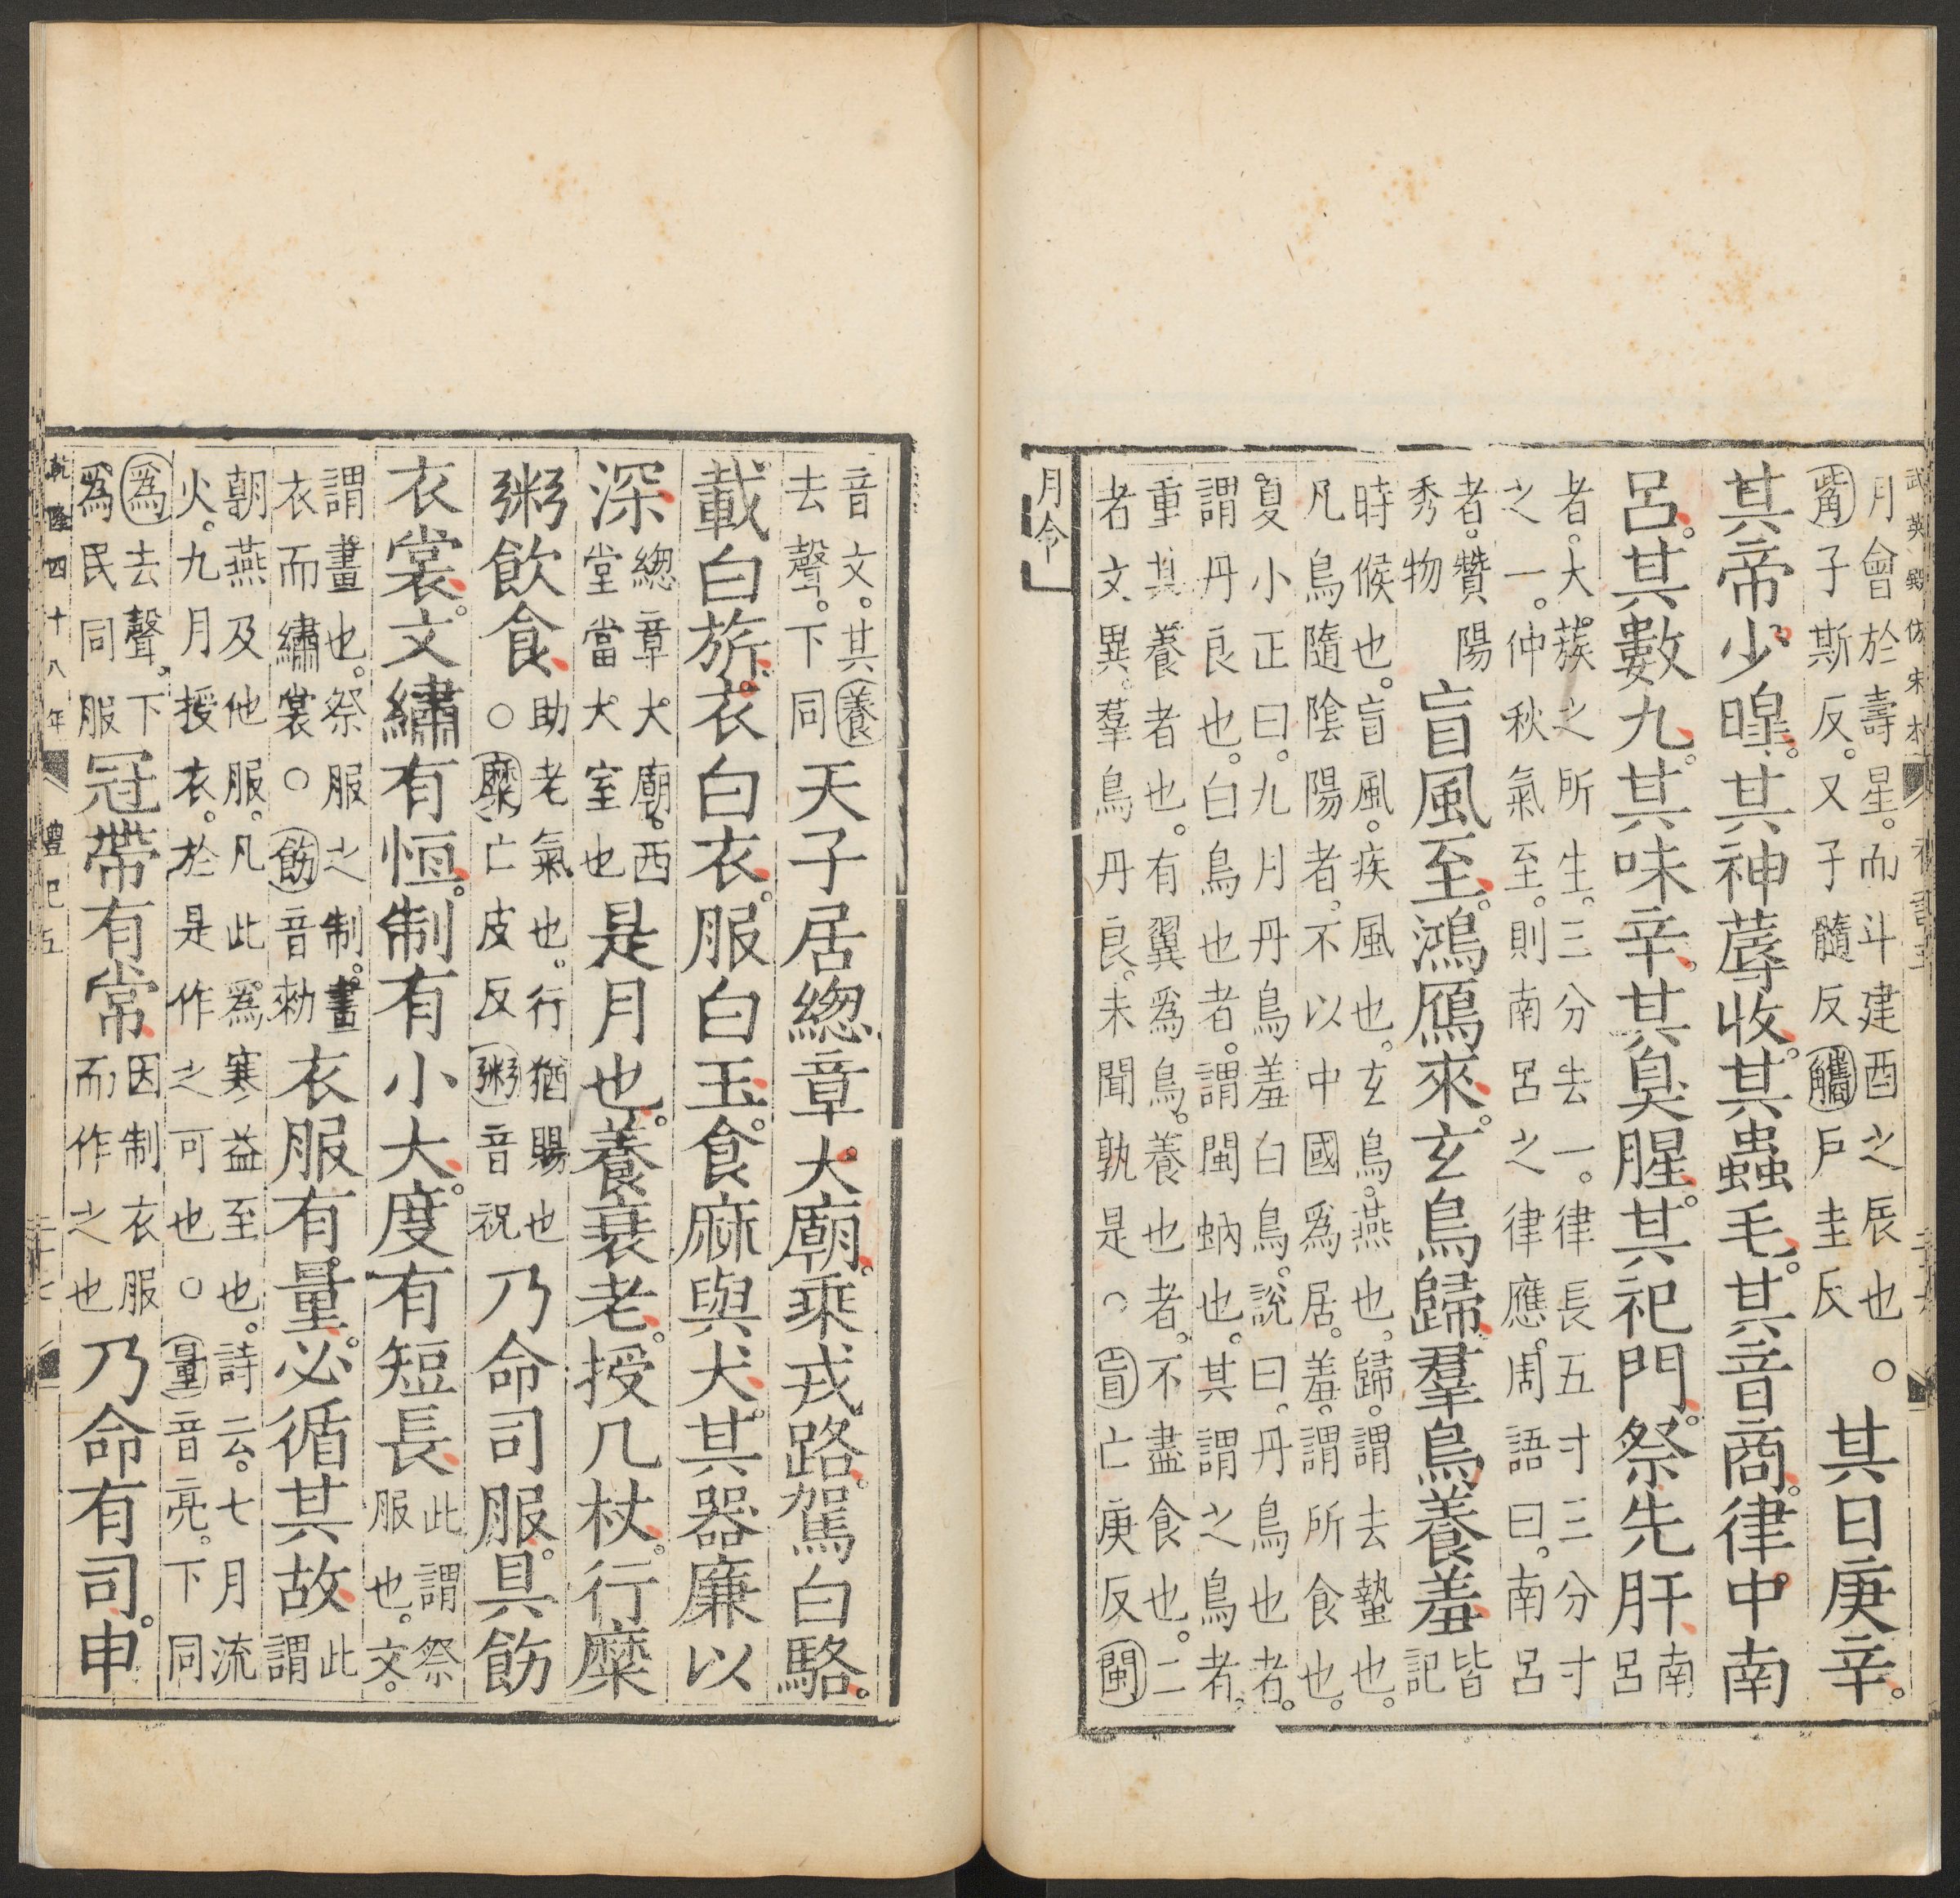 武英殿仿宋本 禮記五 二十六
月會於壽星。而斗建酉之辰也○
觜子斯反。又子髓反觿戶圭反
其日庚辛。
其帝少暤。其神蓐收。其蟲毛。其音商。律中南
呂。其數九。其味辛。其臭腥。其祀門。祭先肝。
南
呂
者。大蔟之所生。三分去一。律長五寸三分寸
之一。仲秋氣至。則南呂之律應。周語曰。南呂
者。贊陽
秀物
盲風至。鴻鴈來。玄鳥歸。羣鳥養羞。
皆
記
時候也。盲風。疾風也。玄鳥。燕也。歸。謂去蟄也。
凡鳥隨陰陽者。不以中國爲居。羞。謂所食也。
夏小正曰。九月丹鳥羞白鳥。說曰。丹鳥也者。
謂丹良也。白鳥也者。謂閩蚋也。其謂之鳥者。
重其養者也。有翼爲鳥。養也者。不盡食也。二
者文異。羣鳥丹良。未聞孰是。○盲亡庚反閩
月令
音文。其養
去聲。下同
天子居緫章大廟。乘戎路。駕白駱。
載白旂。衣白衣。服白玉。食麻與犬。其器廉以
深
緫章大廟。西
堂當大室也
是月也。養衰老。授几杖。行糜
粥飲食。
助老氣也。行猶賜也
○糜亡皮反粥音祝
乃命司服。具飭
衣裳。文繡有恆。制有小大。度有短長。
此謂祭
服也。文。
謂畫也。祭服之制。畫
衣而繡裳○飭音勑
衣服有量。必循其故。
此
謂
朝燕及他服。凡此爲寒益至也。詩云。七月流
火。九月授衣。於是作之可也○量音亮。下同
爲去聲。下
爲民同服
冠帶有常。
因制衣服
而作之也
乃命有司。申
乾隆四十八年 禮記五 二十七